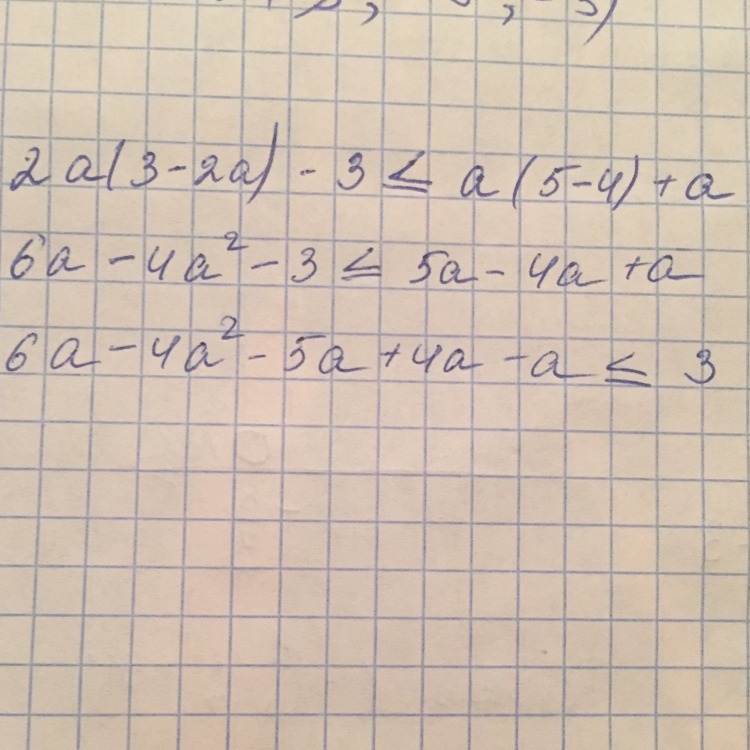 2a(3-2a) - 3 ≤ a(5-4) + a
6a - 4a² - 3 ≤ 5a - 4a + a
6a - 4a² - 5a + 4a - a ≤ 3